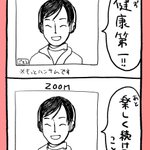 健康第一!!
※もっとハンサムです
ZOOM
あと
楽しく続け